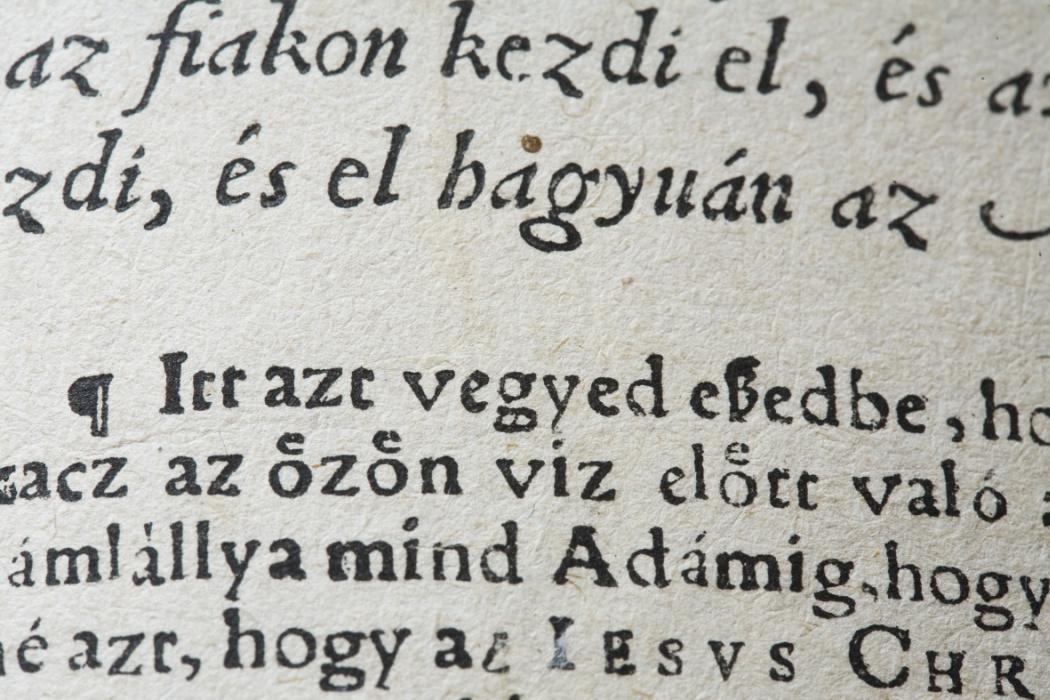 az fiakon kezdi el, és az
zdi, és el hagyuán az
¶ Itt azt vegyed eßedbe, ho
acz az oͤzoͤn viz eloͤtt való
ámlállya mind Adámig, hogy
né azt, hogy az IESVS CHR